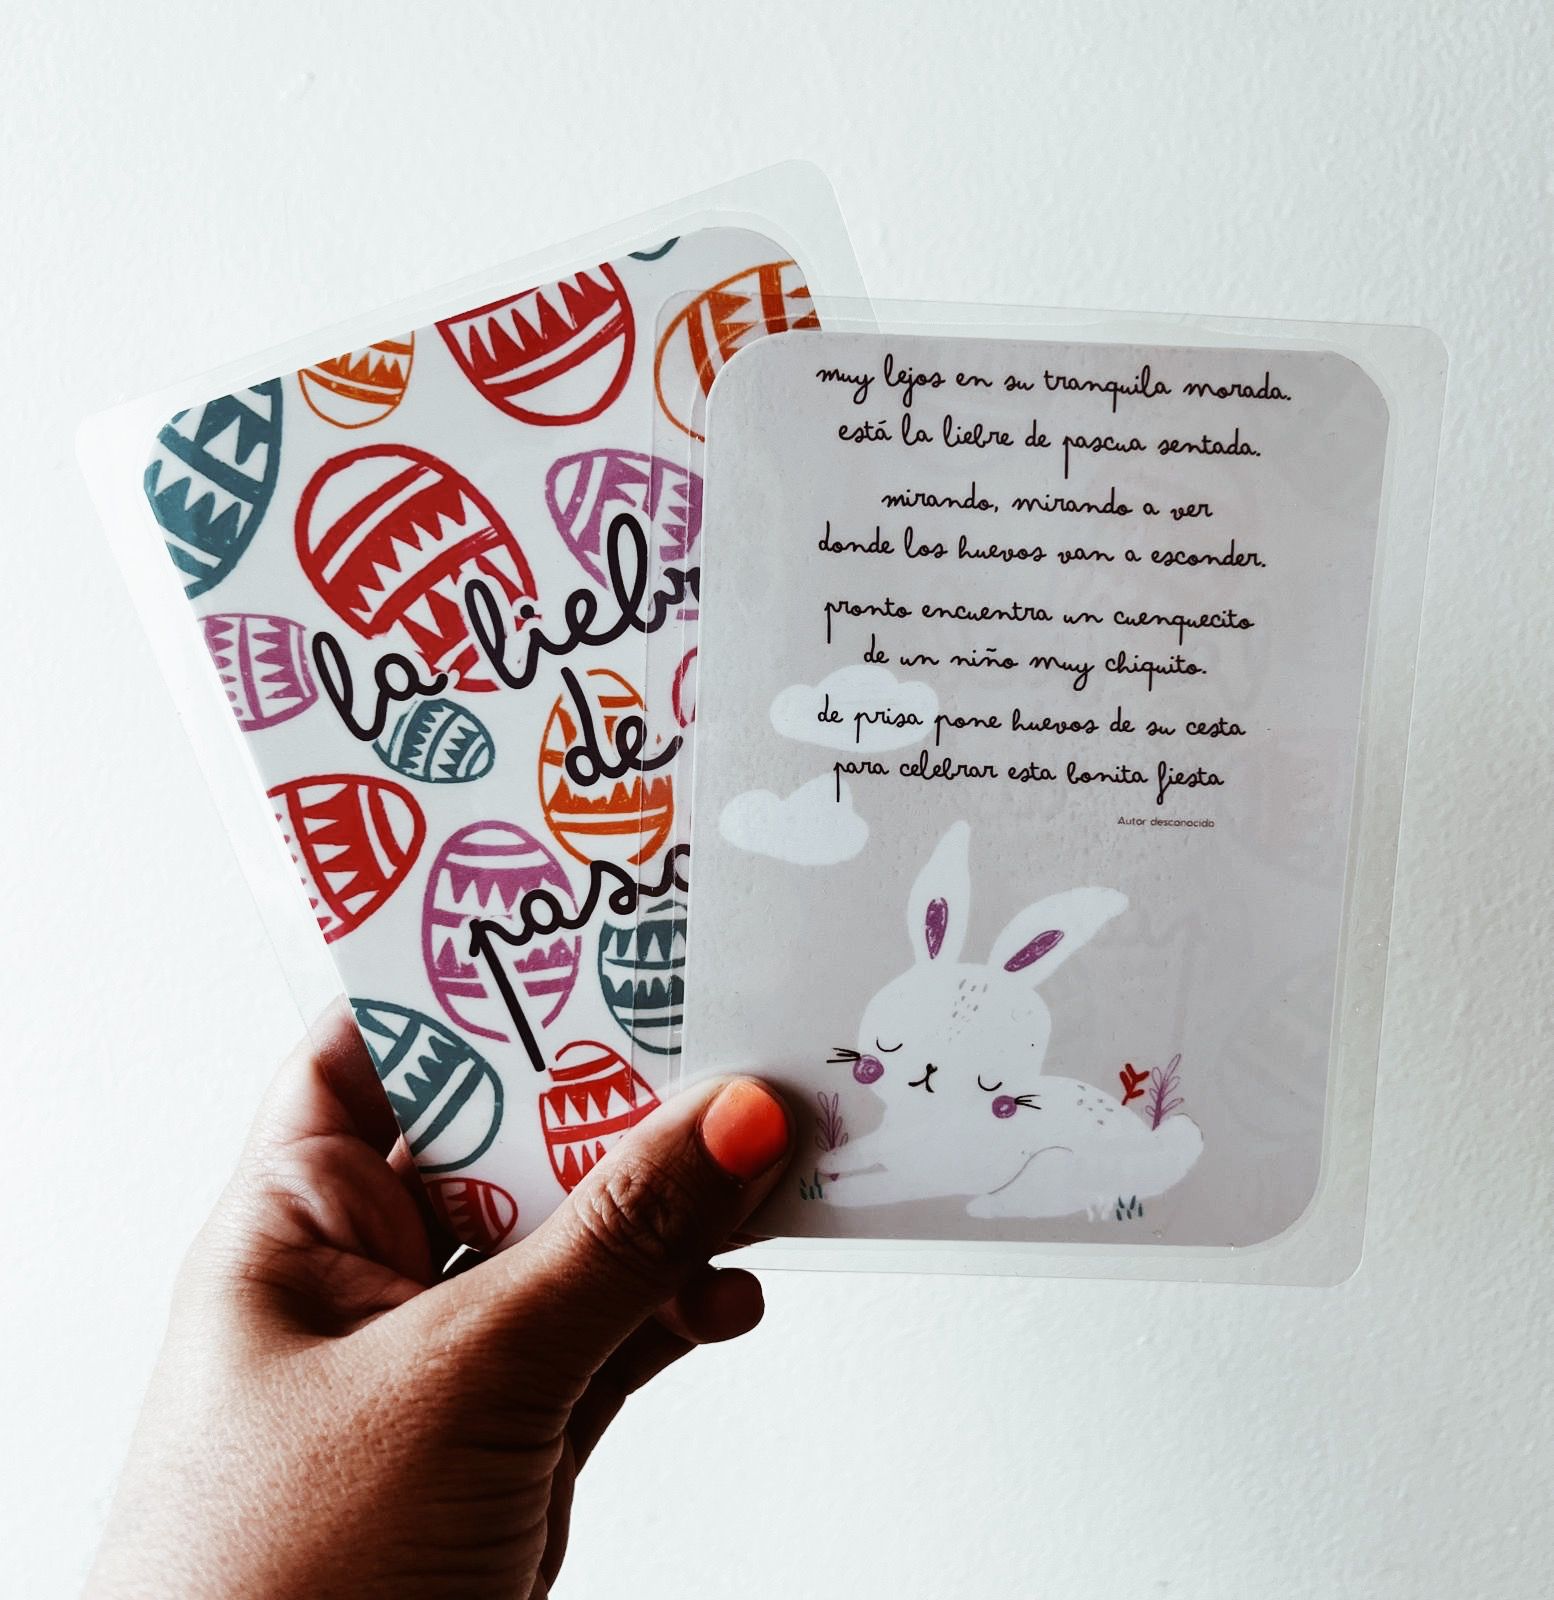 la liebr
de
pasc
muy lejos en su tranquila morada.
está la liebre de pascua sentada.
mirando, mirando a ver
donde los huevos van a esconder.
pronto encuentra un cuenquecito
de un niño muy chiquito.
de prisa pone huevos de su cesta
para celebrar esta bonita fiesta
Autor desconocido